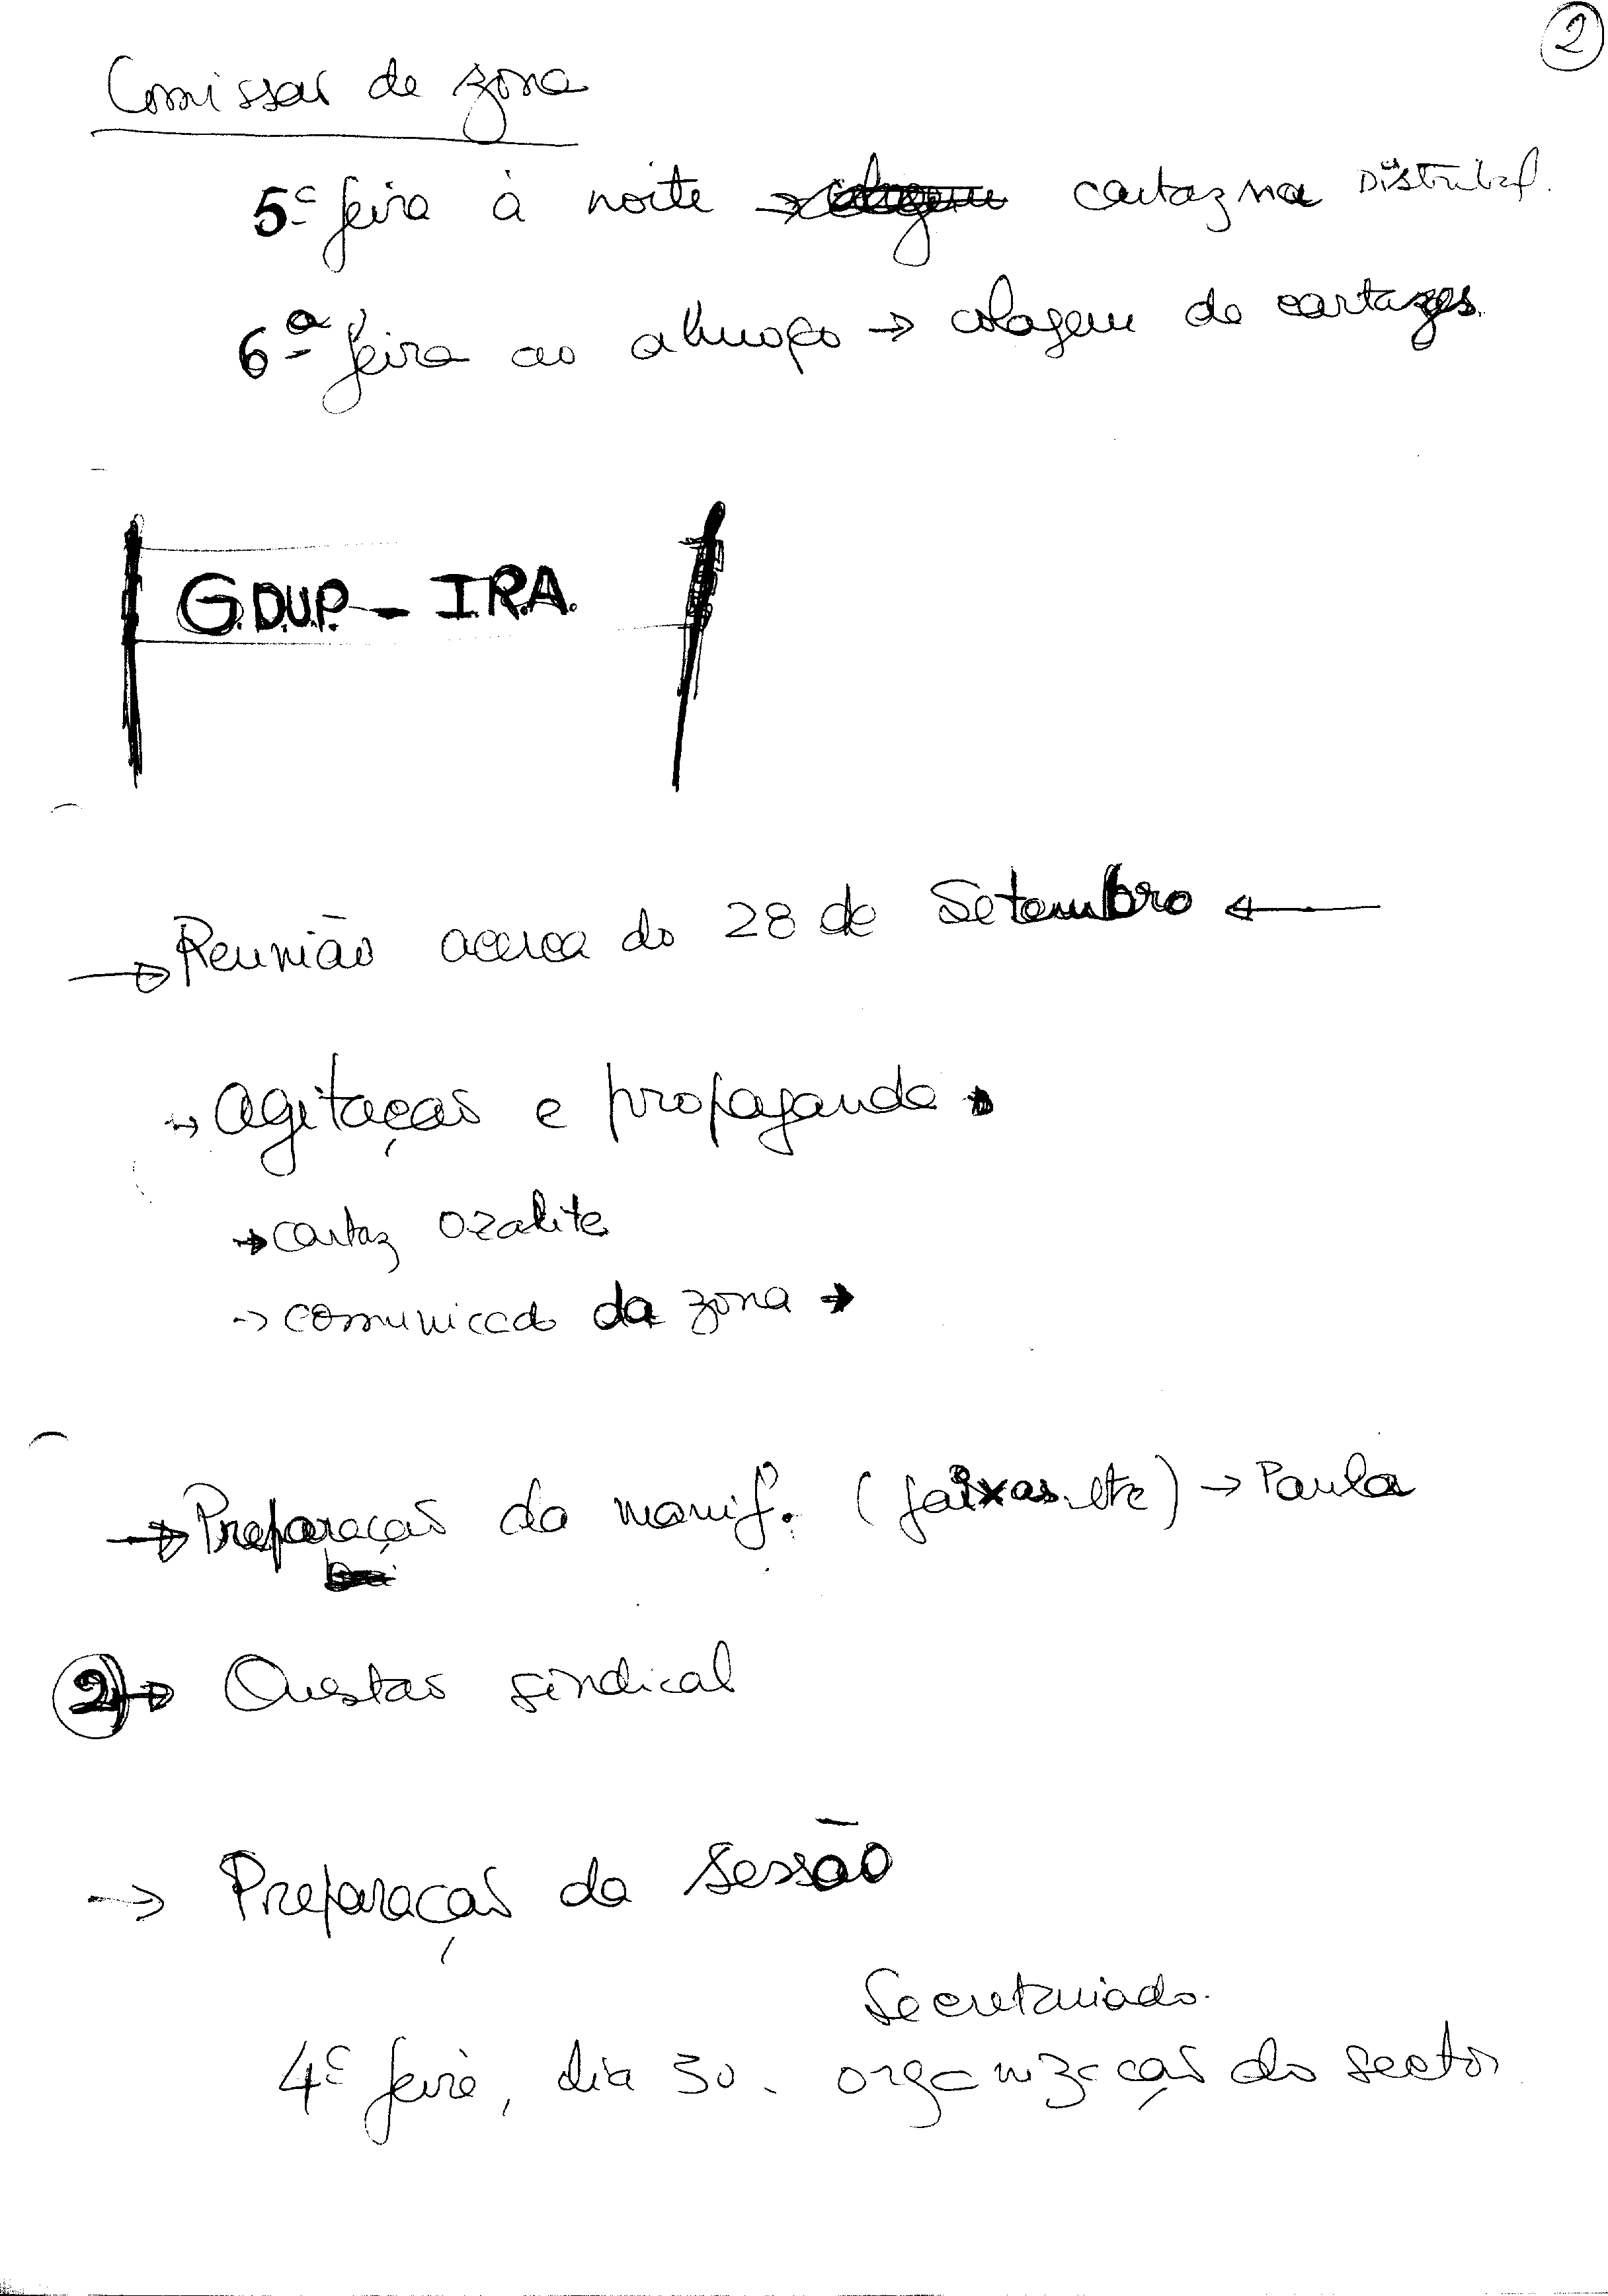 2
Comissão de zona
5ª feira à noite → cartaz na Distrital.
6ª feira ao almoço → colagem de cartazes.
G.D.U.P. - I.R.A.
→ Reunião acerca do 28 de Setembro ←
→ Agitação e propaganda →
→ cartaz ozalite
→ comunicado da zona →
→ Preparação da manif. (faixas etc) → Paula
2 → Questão sindical
→ Preparação da sessão
Secretariado.
4ª feira, dia 30. organização do sector